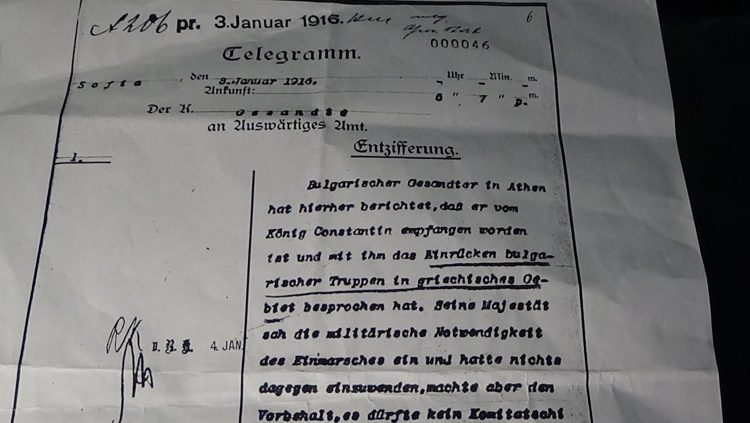 A 206 pr. 3. Januar 1916.
6
000046
Telegramm.
Sofia, den 3. Januar 1916. – Uhr – Min. – m.
Ankunft: 6 " 7 " p. m.
Der K. Gesandte
an Auswärtiges Amt.
Entzifferung.
1.
Bulgarischer Gesandter in Athen
hat hierher berichtet, daß er vom
König Constantin empfangen worden
ist und mit ihm das Einrücken bulga-
rischer Truppen in griechisches Ge-
biet besprochen hat. Seine Majestät
sah die militärische Notwendigkeit
des Einmarsches ein und hatte nichts
dagegen einzuwenden, machte aber den
Vorbehalt, es dürfte kein Komitatschi
4. JAN.